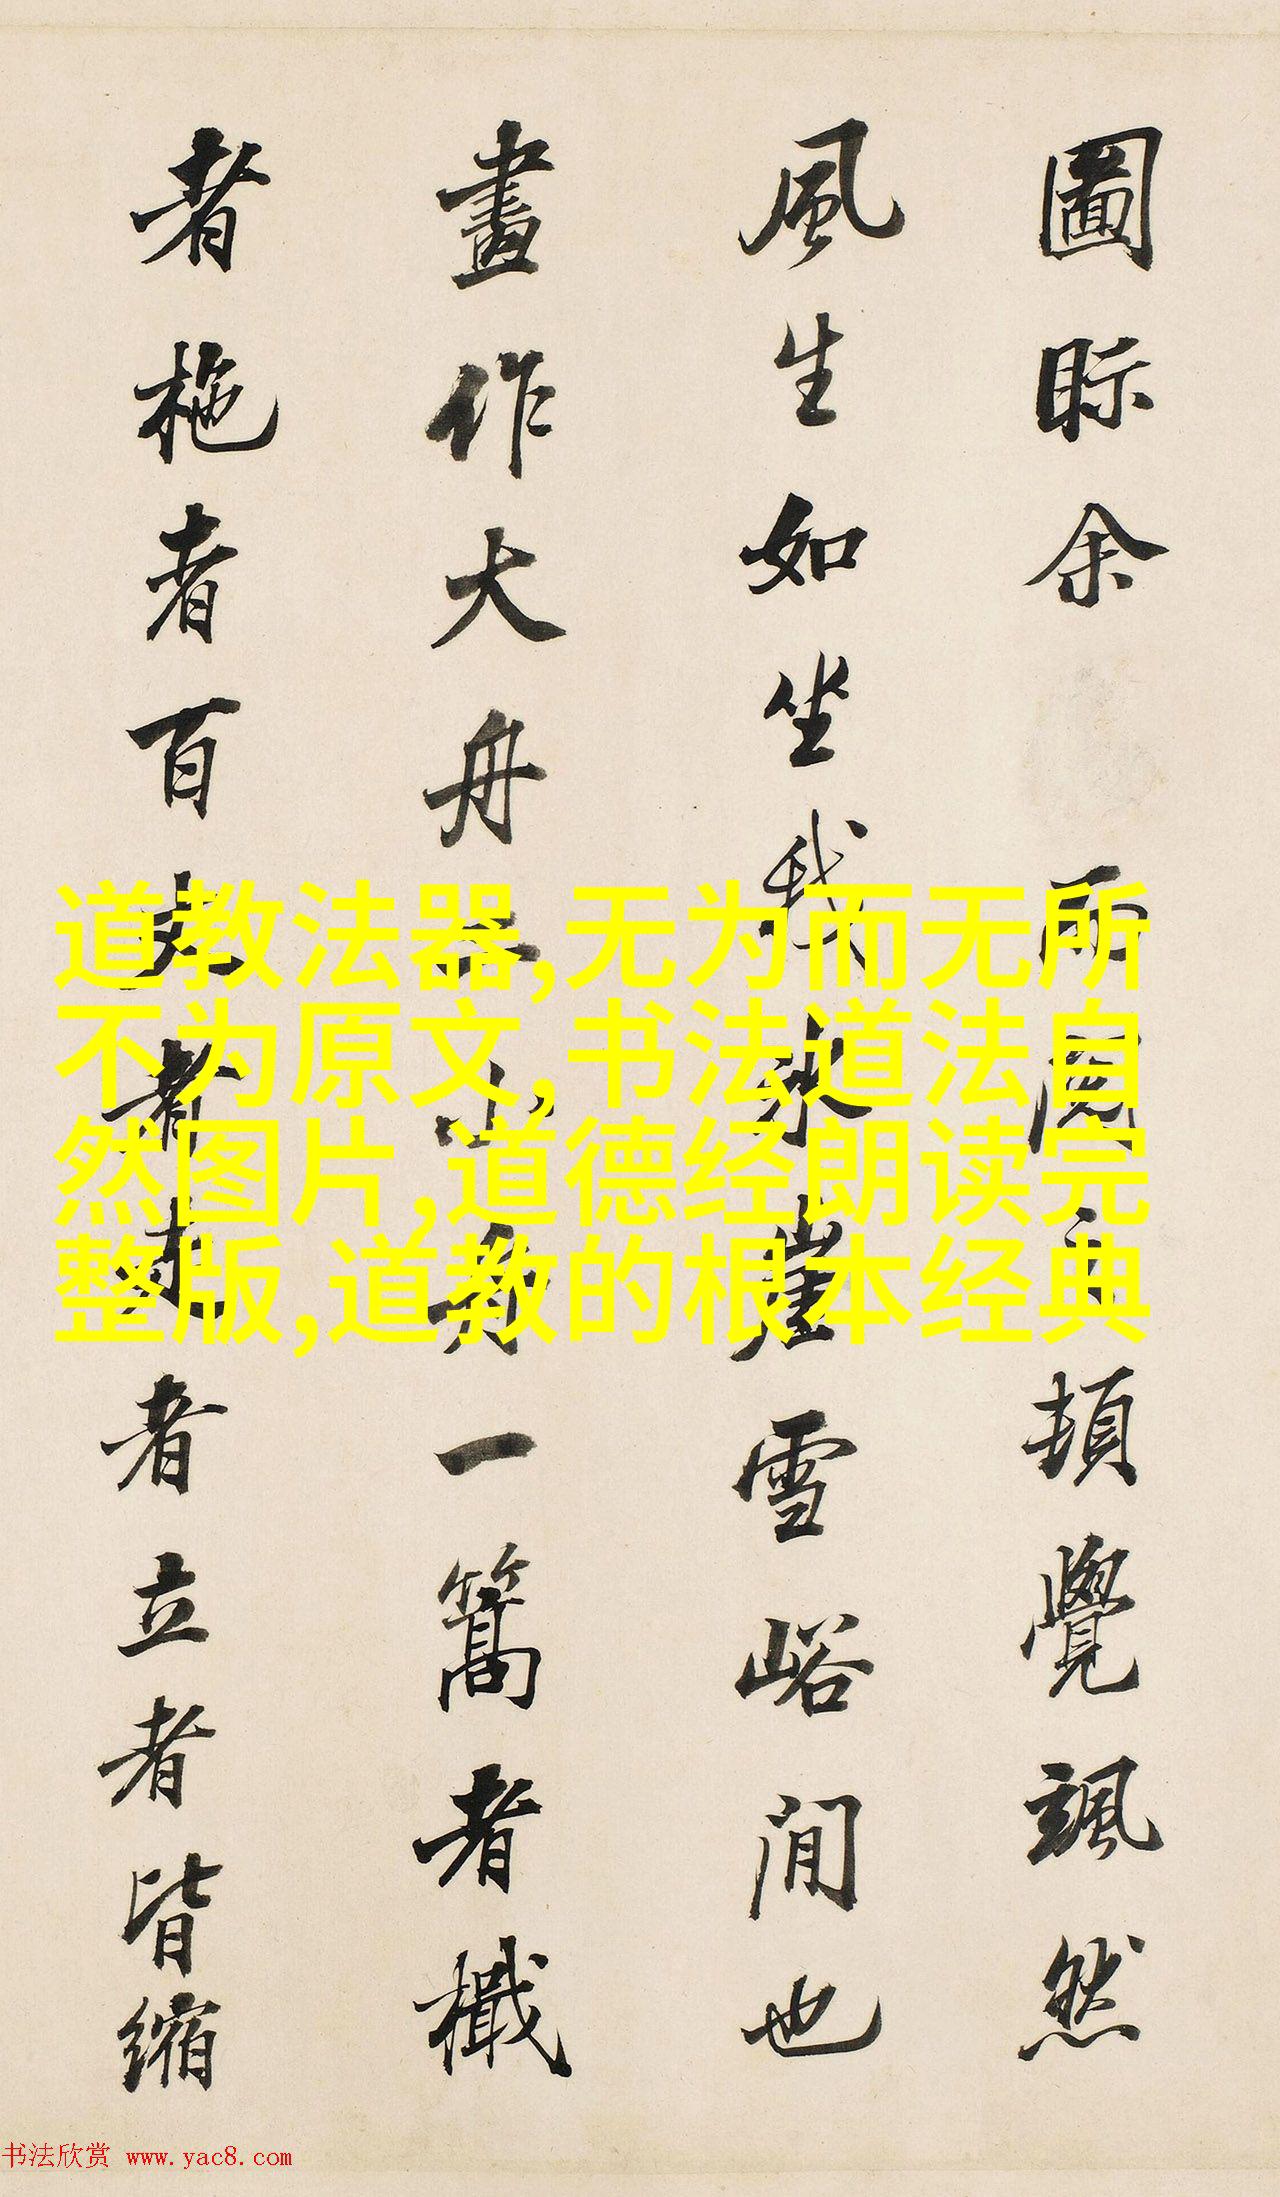 圖眎余閱之頓覺颯然
風生如坐我冰崖雪峪間也
畫作大舟小舟一篙者檝
者柂者百丈者者立者皆縮
道教法器,无为而无所
不为原文,书法道法自
然图片,道德经朗读完
整版,道教的根本经典
书法欣赏 www.yac8.com